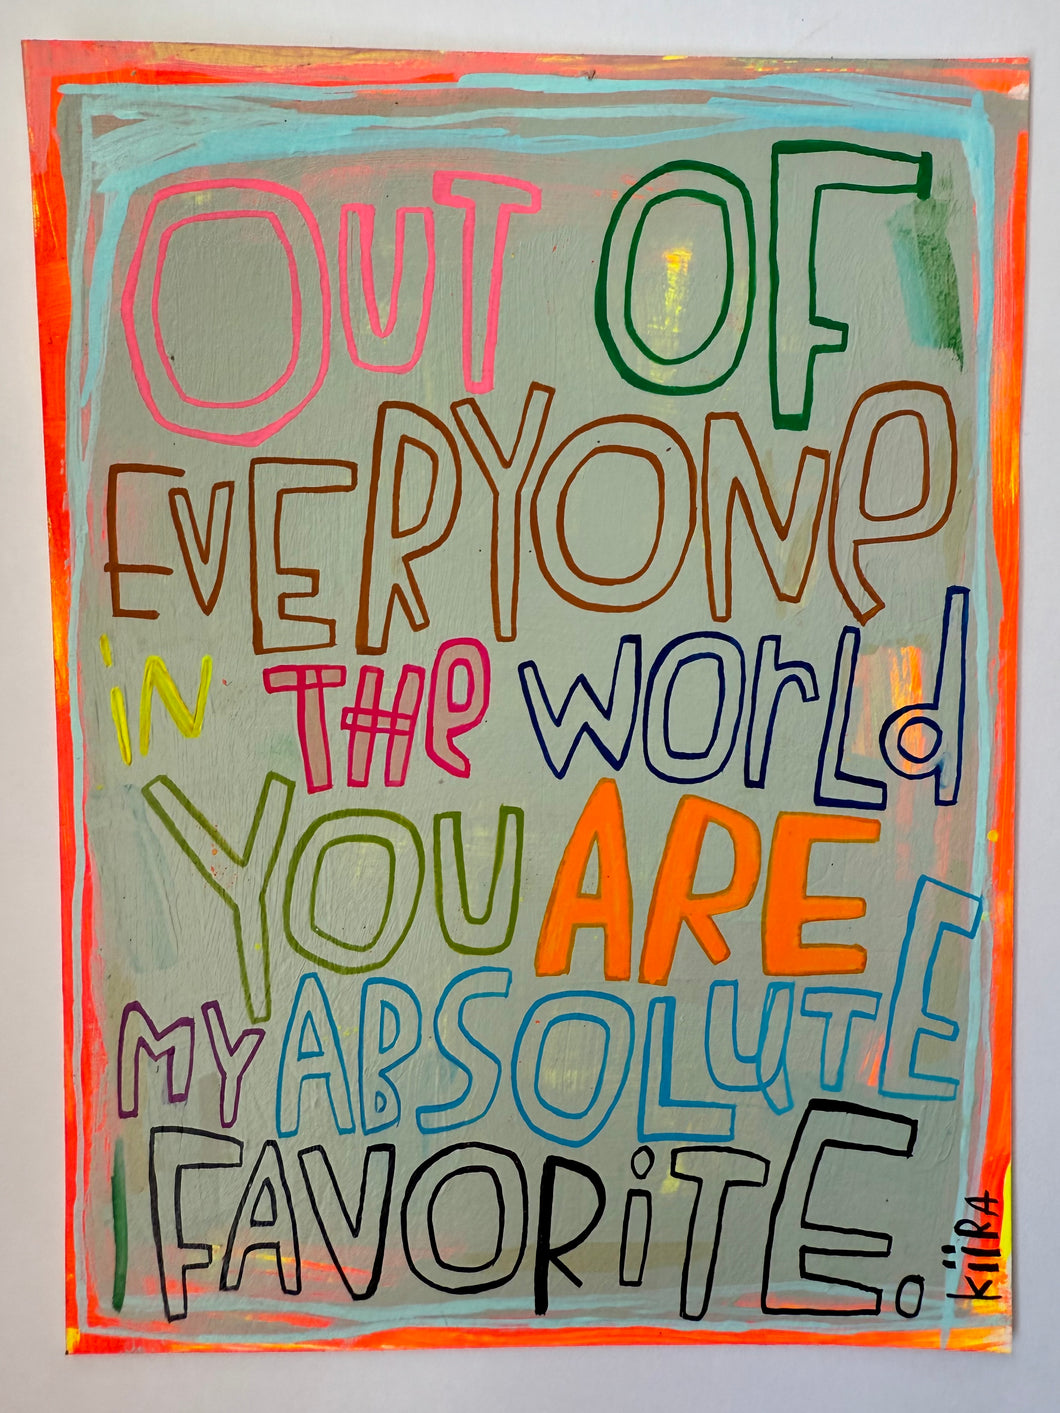 OUT OF
EVERYONe
iN THe WOrLd
YOU ARE
MY ABSOLUTE
FAVORiTE.
KiiRA